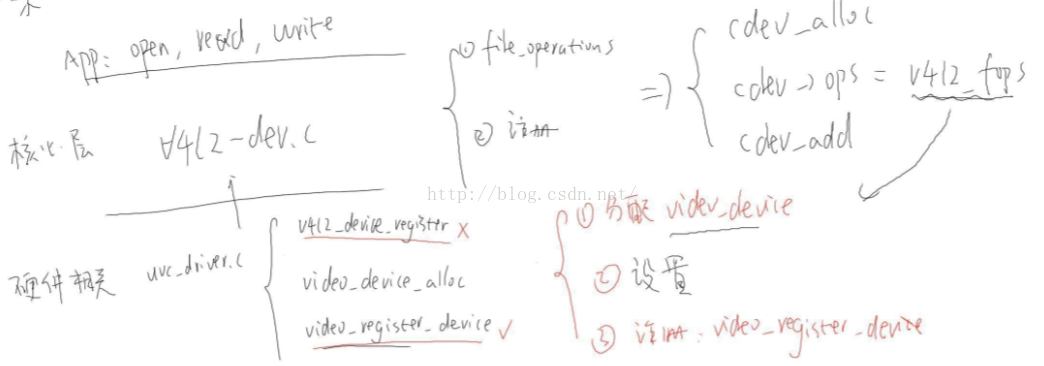 App: open, read, write
核心层 v4l2-dev.c
① file_operations
② 注册
=> cdev_alloc
cdev->ops = v4l2_fops
cdev_add
http://blog.csdn.net/
硬件相关 uvc_driver.c
v4l2_device_register x
video_device_alloc
video_register_device √
① 分配 video_device
② 设置
③ 注册: video_register_device